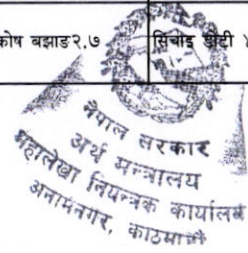 कोष बझाङ२.७
सिंचाइ डोटी
नेपाल सरकार
अर्थ मन्त्रालय
महालेखा नियन्त्रक कार्यालय
अनामनगर, काठमाडौं